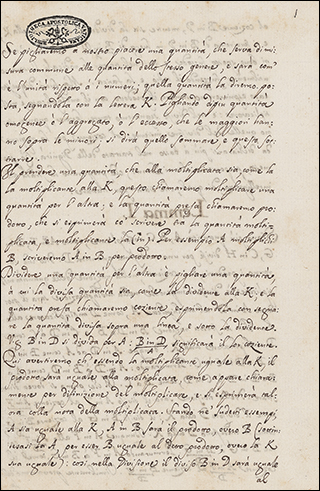 1
BIBLIOTECA APOSTOLICA
Se pigliaremo a nostro piacere una quantità che serva di mi
sura commune alle quantità dello stesso genere e sarà com
e l'unità rispetto a i numeri; quella quantità la diremo posi
ta segnandola con la lettera K. Pigliando dipiù quantità
omogenee l'aggregato, ò l'eccesso che le maggiori han
no sopra le minori si dirà quello sommare e questo sot
trarre.
Il prendere una quantità, che alla moltiplicata sia come la
la moltiplicante alla K, questo chiamaremo moltiplicare una
quantità per l'altra; e la quantità presa chiamaremo pro
dotto, che si esprimerà co' scrivere tra la quantità molti
plicata, e moltiplicante la (in). Per essempio A multiplicato
B, scriveremo A in B per prodotto.
Dividere una quantità per l'altra è pigliare una quantità
à cui la divisa quantità sia, come la dividente alla K, e la
quantità presa chiamaremo coziente esprimendola con segnar
e la quantità divisa sopra una linea, e sotto la dividente.
V.g. B in D si divida per A; B in D significarà il lor coziente.
A
Qui avvertiremo che essendo la moltiplicante uguale alla K, il
prodotto sarà uguale alla moltiplicata come appare chiara
mente per definizione del moltiplicare, e si esprimerà tal
ora colla nota della moltiplicata. Stando ne' sudetti essempi
A sia uguale alla K. A in B sarà il prodotto, overo B (sottin
tesavi la A, per esser B uguale al detto prodotto, overo la K
sua uguale): così nella Divisione il diviso B in D sarà uguale
al